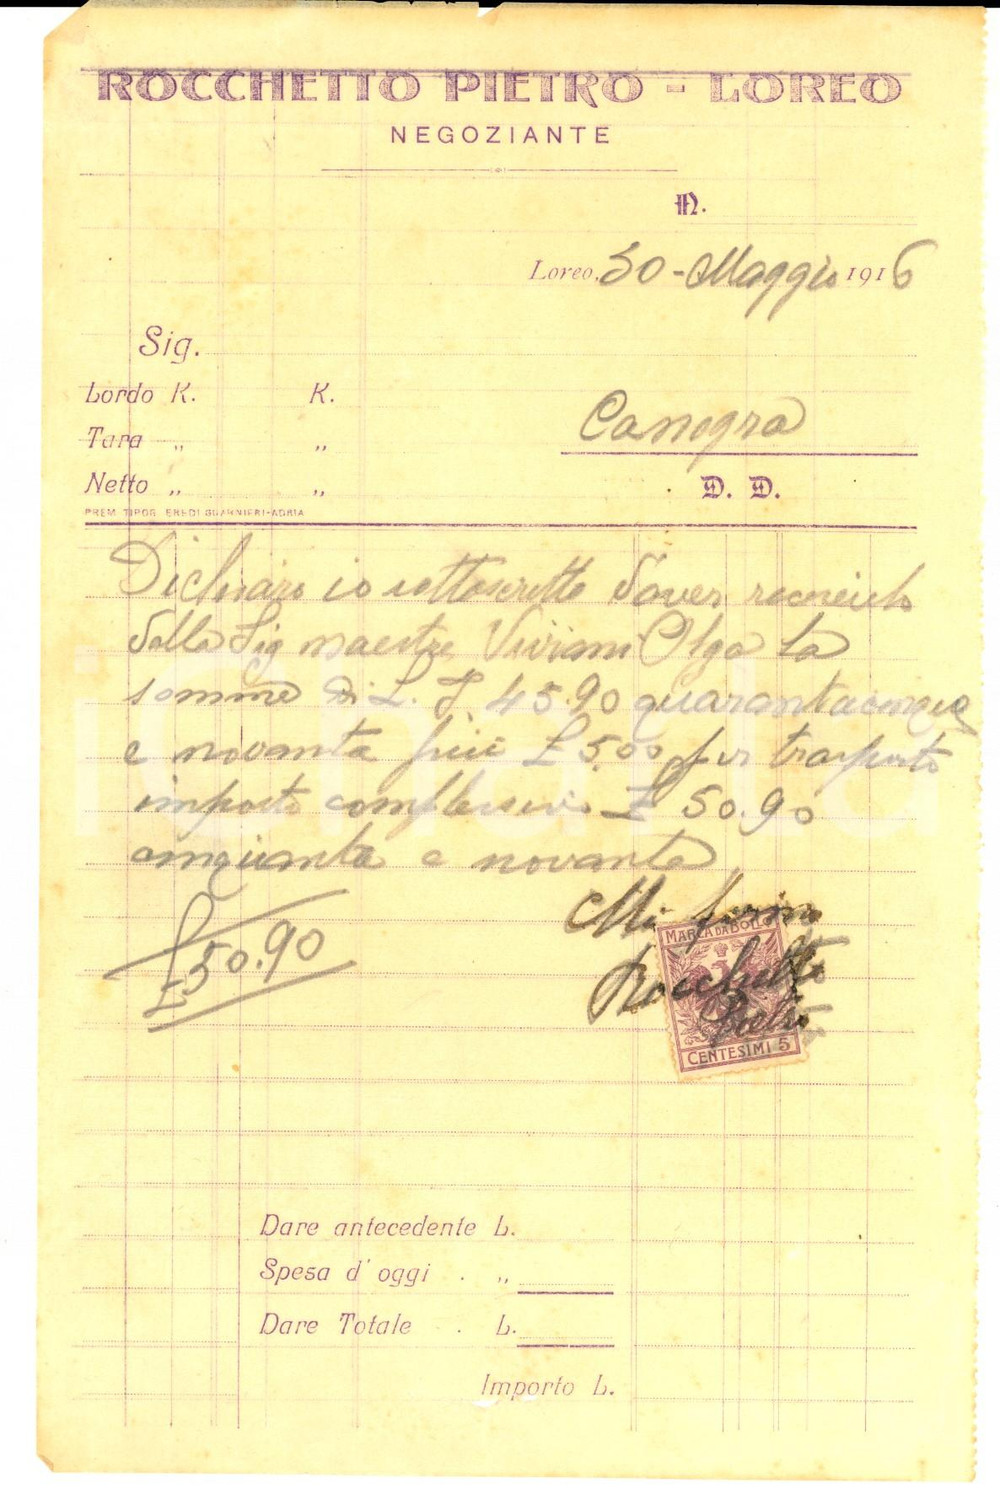 ROCCHETTO PIETRO - LOREO
NEGOZIANTE
N.
Loreo, 30 - Maggio 1916
Sig.
Lordo K. K.
Canegra
Tara „ „
Netto „ „
D. D.
PREM. TIPOG. EREDI GUARNIERI-ADRIA
Dichiaro io sottoscritto d'aver ricevuto
dalla Sig maestra Viviani Olga la
somma di L. 45.90 quarantacinque
e novanta più £ 5.00 per trasporto
importo complessivo £ 50.90
cinquanta e novanta
£ 50.90
Mi firmo
MARCA DA BOLLO
Rocchetto
Pietro
CENTESIMI 5
Dare antecedente L.
Spesa d'oggi . „
Dare Totale . L.
Importo L.